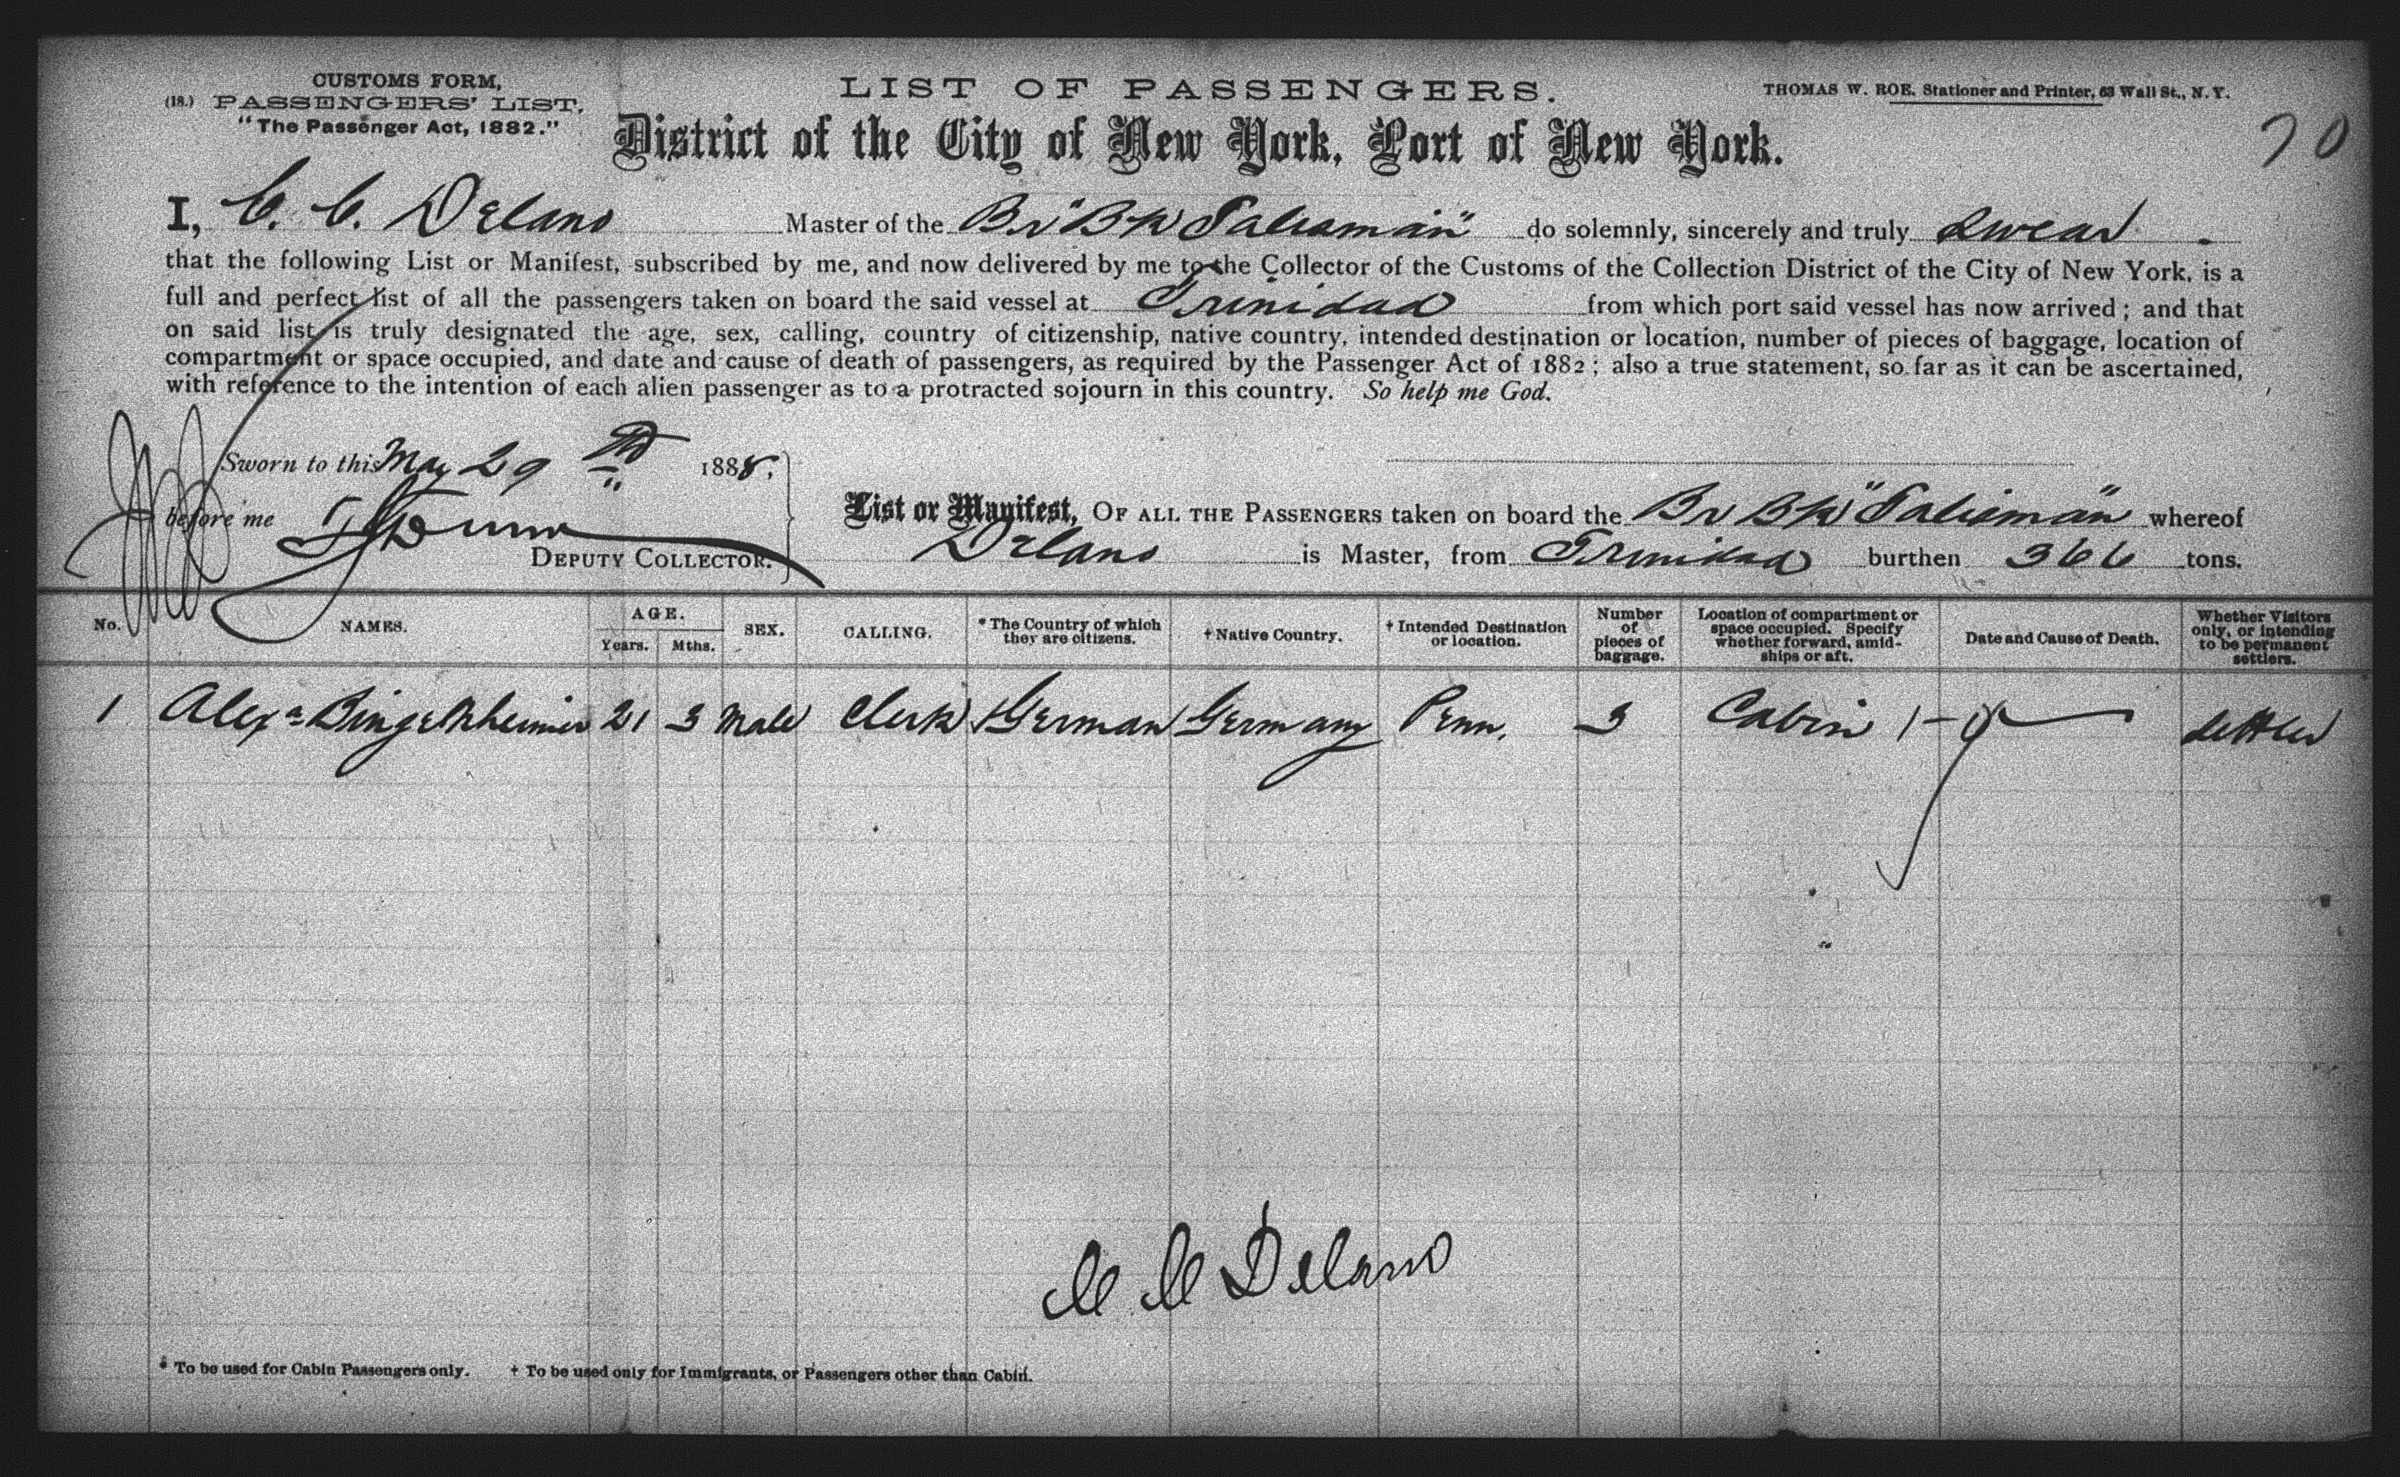 CUSTOMS FORM,
(18.) PASSENGERS' LIST.
"The Passenger Act, 1882."
LIST OF PASSENGERS.
THOMAS W. ROE, Stationer and Printer, 63 Wall St., N.Y.
70
District of the City of New York, Port of New York.
I, C. C. Delano Master of the Br "Bk Talisman" do solemnly, sincerely and truly swear
that the following List or Manifest, subscribed by me, and now delivered by me to the Collector of the Customs of the Collection District of the City of New York, is a
full and perfect list of all the passengers taken on board the said vessel at Trinidad from which port said vessel has now arrived; and that
on said list is truly designated the age, sex, calling, country of citizenship, native country, intended destination or location, number of pieces of baggage, location of
compartment or space occupied, and date and cause of death of passengers, as required by the Passenger Act of 1882; also a true statement, so far as it can be ascertained,
with reference to the intention of each alien passenger as to a protracted sojourn in this country. So help me God.
Sworn to this May 29 th 1888.
before me
DEPUTY COLLECTOR.
List or Manifest, OF ALL THE PASSENGERS taken on board the Br Bk "Talisman" whereof
Delano is Master, from Trinidad burthen 366 tons.
No. NAMES. AGE. Years. Mths. SEX. CALLING. *The Country of which they are citizens. †Native Country. †Intended Destination or location. Number of pieces of baggage. Location of compartment or space occupied. Specify whether forward, amidships or aft. Date and Cause of Death. Whether Visitors only, or intending to be permanent settlers.
1 Alexr 21 3 Male Clerk German Germany Penn. 3 Cabin settler
C C Delano
* To be used for Cabin Passengers only. † To be used only for Immigrants, or Passengers other than Cabin.